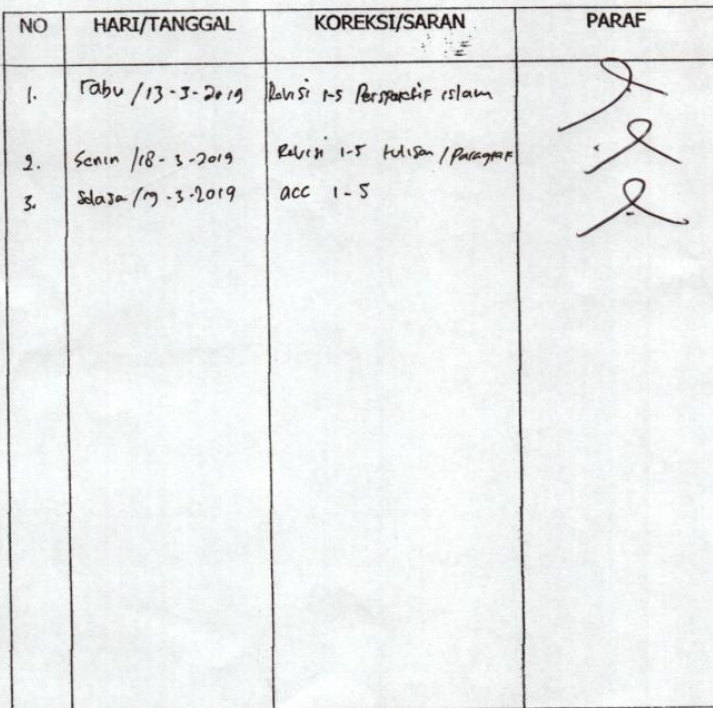 NO HARI/TANGGAL KOREKSI/SARAN PARAF
1. Rabu / 13 - 3 - 2019 Revisi 1-5 Perspektif islam
2. Senin / 18 - 3 - 2019 Revisi 1-5 tulisan / Paragraf
3. Selasa / 19 - 3 - 2019 acc 1 - 5